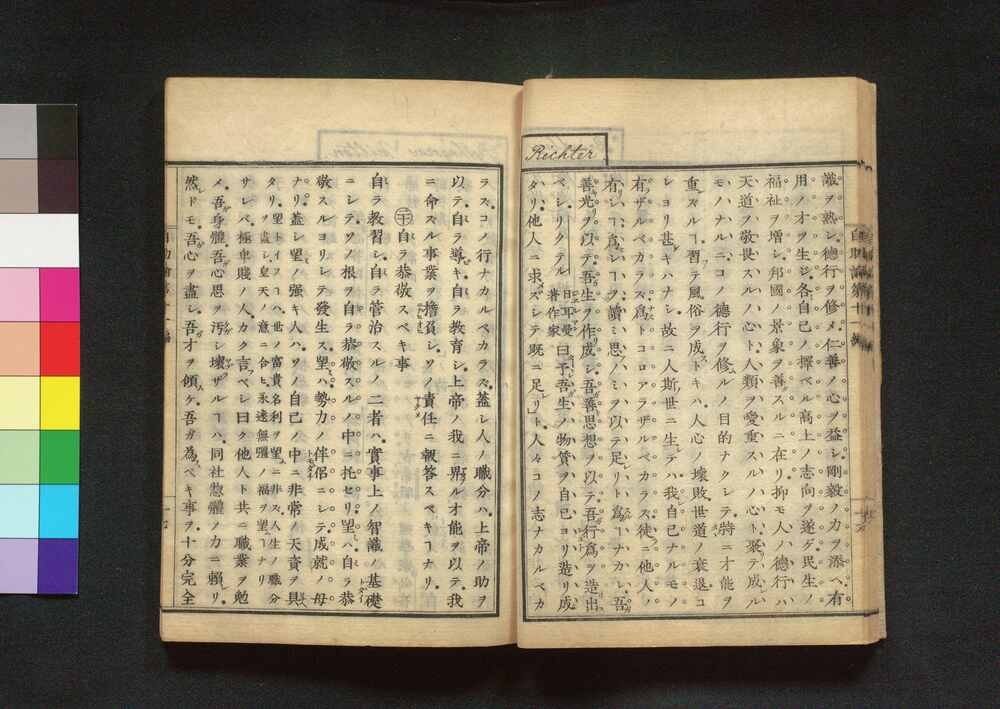 Richter
識ヲ熟シ德行ヲ修メ仁善ノ心ヲ益シ剛毅ノ力ヲ添ヘ有
用ノ才ヲ生ジ各自己ノ擇ベル高上ノ志向ヲ遂ゲ民生ノ
福祉ヲ增シ邦國ノ景象ヲ善スルニ在リ抑モ人ノ德行ハ
天道ヲ敬畏スルノ心ト人類ヲ愛重スルノ心ト聚テ成ル
モノナルニコノ德行ヲ修ルノ目的ナクシテ特ニ才能ヲ
重スルヿ習テ風俗ヲ成トキハ人心ノ壞敗世道ノ衰退コ
レヨリ甚キハナシ故ニ人斯世ニ生テハ我自己ナルモノ
有ザルベカラズ爲トコロアラザルベカラズ徒ニ他人ノ
有シヿ爲シヿヲ讀ミ思ノミヲ以テ足レリト爲ヿナカレ吾
善光ヲ以テ吾生ヲ作成シ吾善思想ヲ以テ吾行爲ヲ造出
ベシリクテル 日耳曼著作家 曰ク予吾生ノ物質ヲ自己ヨリ造リ成
タリ他人ニ求ズシテ既ニ足レリト人々コノ志ナカルベカ
ラズコノ行ナカルベカラズ蓋シ人ノ職分ハ上帝ノ助ヲ
以テ自ラ導キ自ラ教育シ上帝ノ我ニ畀ル才能ヲ以テ我
ニ命ズル事業ヲ擔負シソノ責任ニ報答スベキヿナリ
㊂ 自ラ恭敬スベキ事
自ラ教習シ自ラ管治スルノ二者ハ實事上ノ智識ノ基礎
ニシテソノ根ヲ自ラ恭敬スルノ中ニ托セリ望ハ自ラ恭
敬スルヨリシテ發生ス望ハ勢力ノ伴侶ニシテ成就ノ母
ナリ蓋シ望ノ强キ人ハソノ自己ノ中ニ非常ノ天資ヲ具
タリ 望トイフハ世ノ富貴名利ヲ望ニ非ズ人生ノ職分ヲ盡シ皇天ノ意ニ合ヒ永遠無疆ノ福ヲ望ヿナリ
サレバ極卑賤ノ人カク言ベシ曰ク他人ト共ニ職業ヲ勉
メ吾身體吾心思ヲ汚シ壞ザルヿハ同社惣體ノ力ニ賴リ
然ドモ吾心ヲ盡シ吾才ヲ傾ケ吾ガ爲ベキ事ヲ十分完全